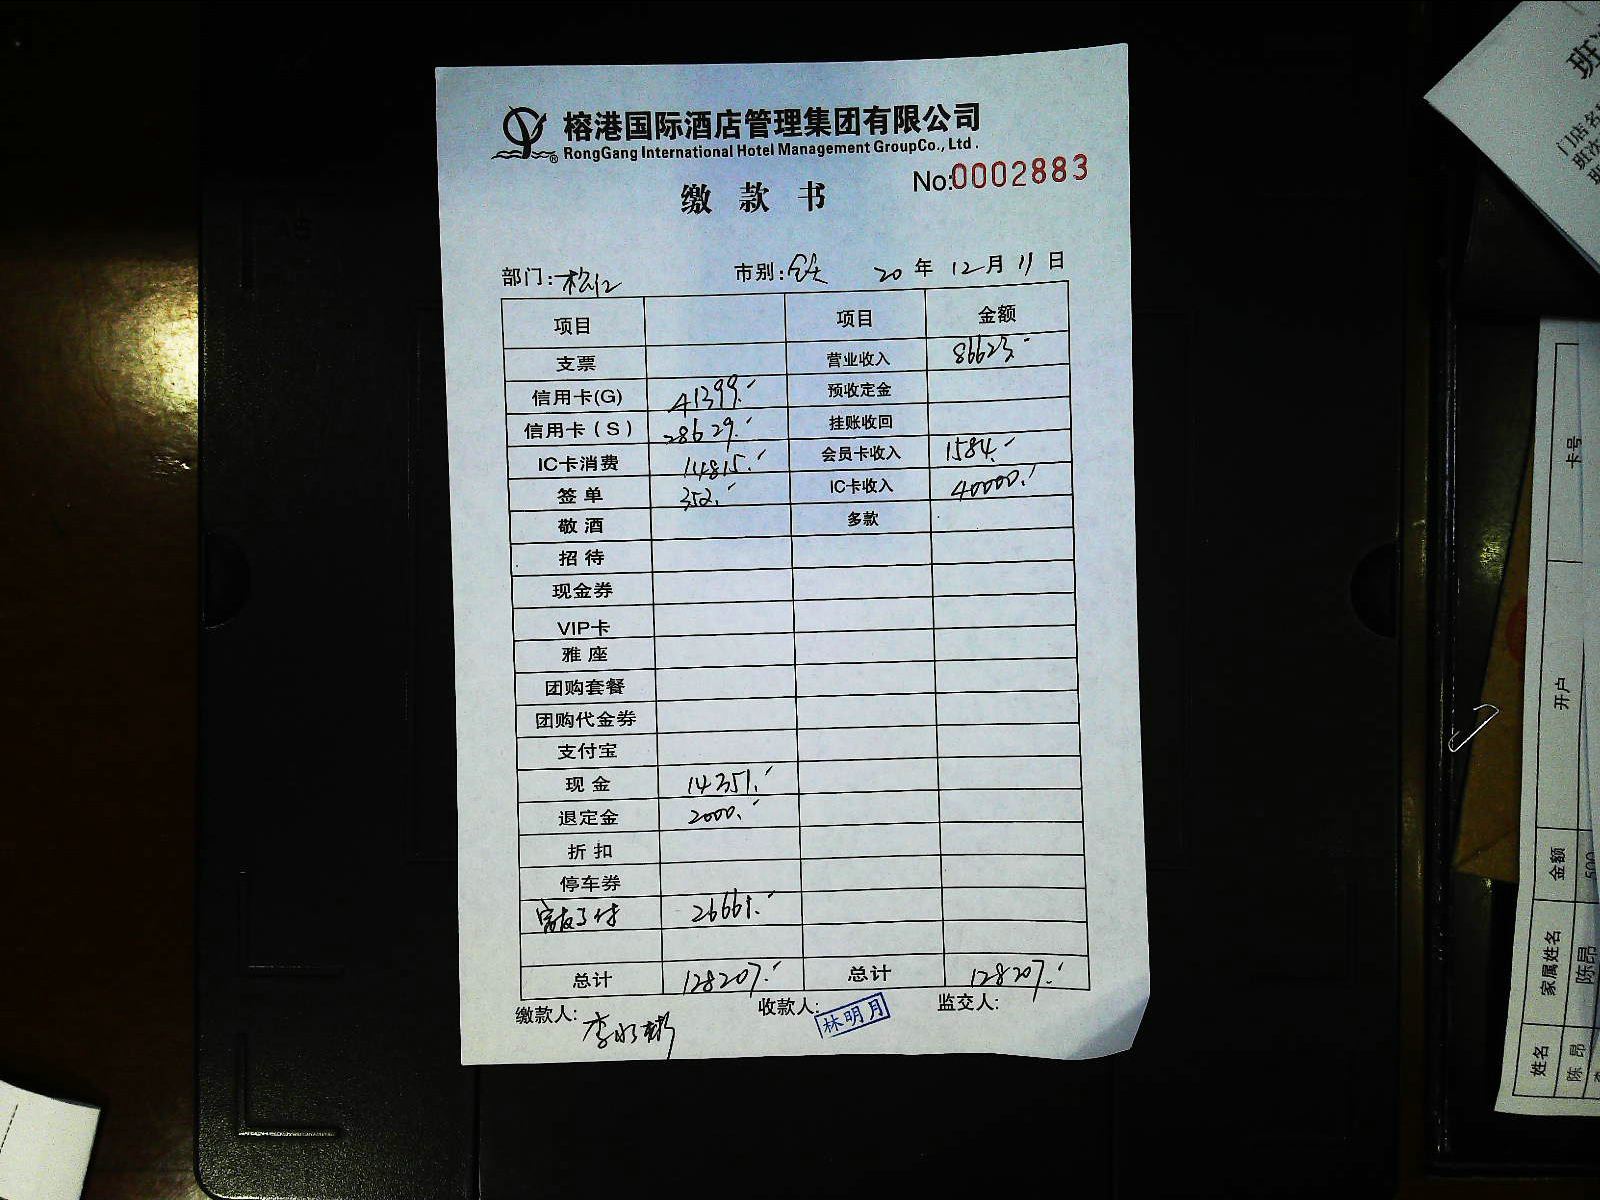 榕港国际酒店管理集团有限公司
RongGang International Hotel Management GroupCo., Ltd.
No:0002883
缴款书
部门:松江 市别:全天 20 年 12月 11 日
项目 项目 金额
支票 营业收入 86623.-
信用卡(G) 41399.- 预收定金
信用卡(S) 28629.- 挂账收回
IC卡消费 14815.- 会员卡收入 1584.-
签单 352.- IC卡收入 40000.-
敬酒 多款
招待
现金券
VIP卡
雅座
团购套餐
团购代金券
支付宝
现金 14351.-
退定金 2000.-
折扣
停车券
26661.-
总计 128207.- 总计 128207.-
缴款人: 李 收款人: 林明月 监交人:
班
门店名
班次
卡号
开户
金额 500
家属姓名 陈昂
姓名 陈昂